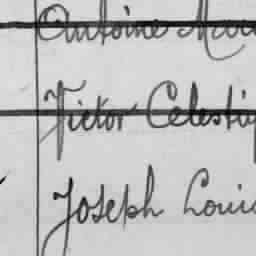 Antoine
Victor Celestin
Joseph Louis